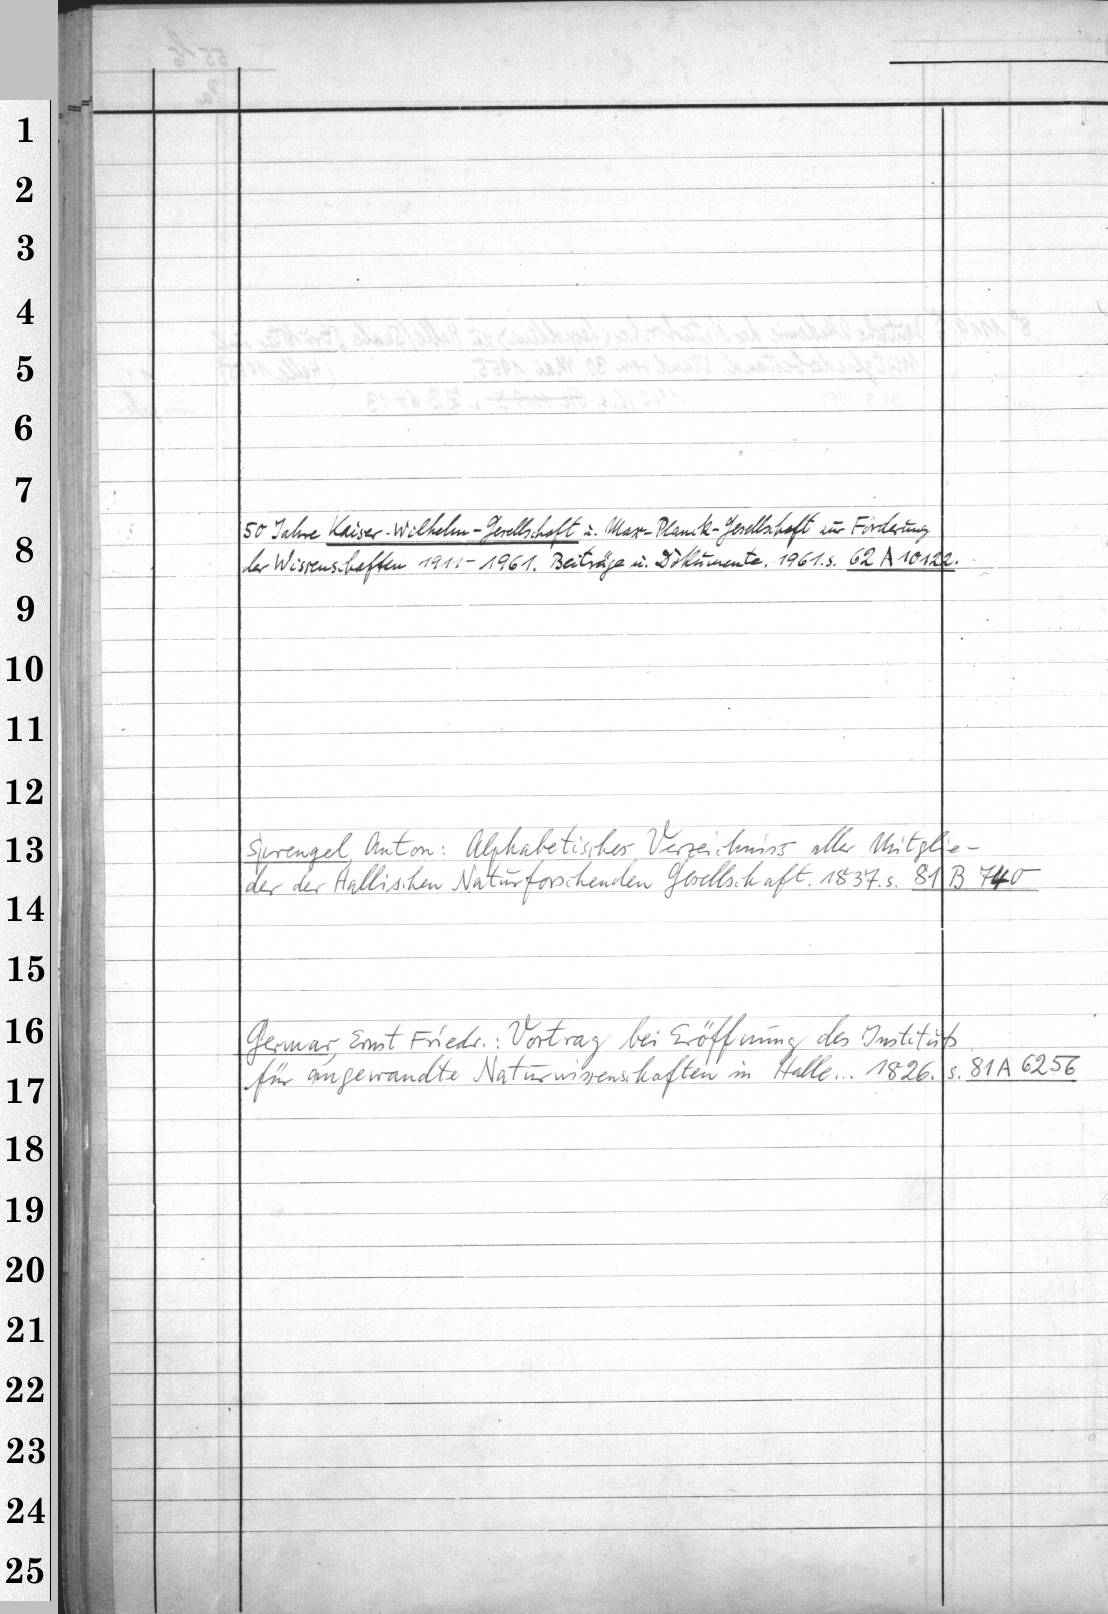 1
2
3
4
5
6
7
50 Jahre Kaiser-Wilhelm-Gesellschaft u. Max-Planck-Gesellschaft zur Förderung
8
der Wissenschaften 1911-1961. Beiträge u. Dokumente. 1961. s. 62 A 10122.
9
10
11
12
13
Sprengel, Anton: Alphabetisches Verzeichniss aller Mitglie-
der der Hallischen Naturforschenden Gesellschaft. 1837. s. 81 B 740
14
15
16
Germar, Ernst Friedr.: Vortrag bei Eröffnung des Instituts
17
für angewandte Naturwissenschaften in Halle... 1826. s. 81 A 6256
18
19
20
21
22
23
24
25